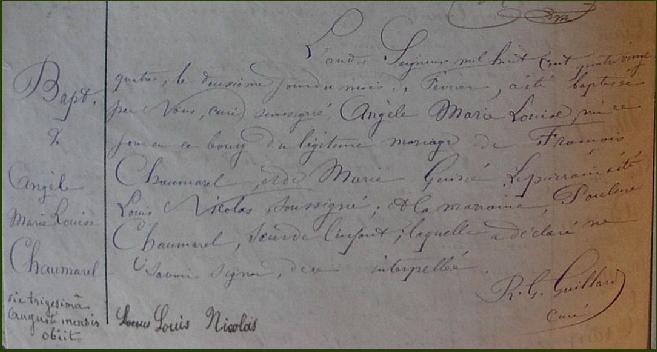 Bapt.
%
Angèle
Marie Louise
Chaumarel
die trigesimâ
Augusti mensis
obiit
L'an du Seigneur mil huit cent quatre vingt
quatre, le deuxième jour du mois de Février, a été baptisée
par Nous, curé soussigné, Angèle Marie Louise, née ce
jour en ce bourg du légitime mariage de François
Chaumarel et de Marie Le parrain a été
Louis Nicolas soussigné, et la marraine, Pauline
Chaumarel, sœur de l'enfant; laquelle a déclaré ne
savoir signer, de ce interpellée.
R. G. Guillard
curé
Louis Nicolas